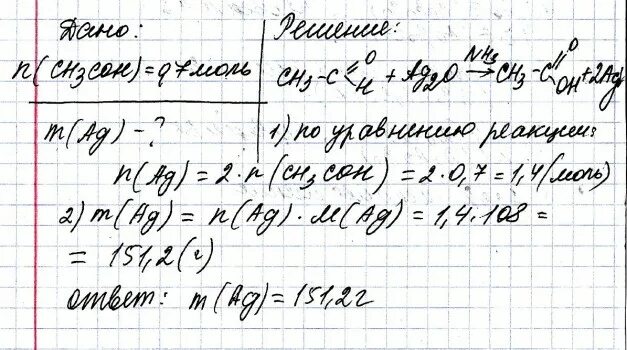 Дано:
Решение:
n(CH3COH)=0,7моль
CH3-C(=O)H + Ag2O NH3→ CH3-C(=O)OH+2Ag
m(Ag)-?
1) по уравнению реакции:
n(Ag) = 2·n(CH3COH) = 2·0,7 = 1,4(моль)
2) m(Ag) = n(Ag)·M(Ag) = 1,4·108 =
= 151,2(г)
ответ: m(Ag)=151,2г